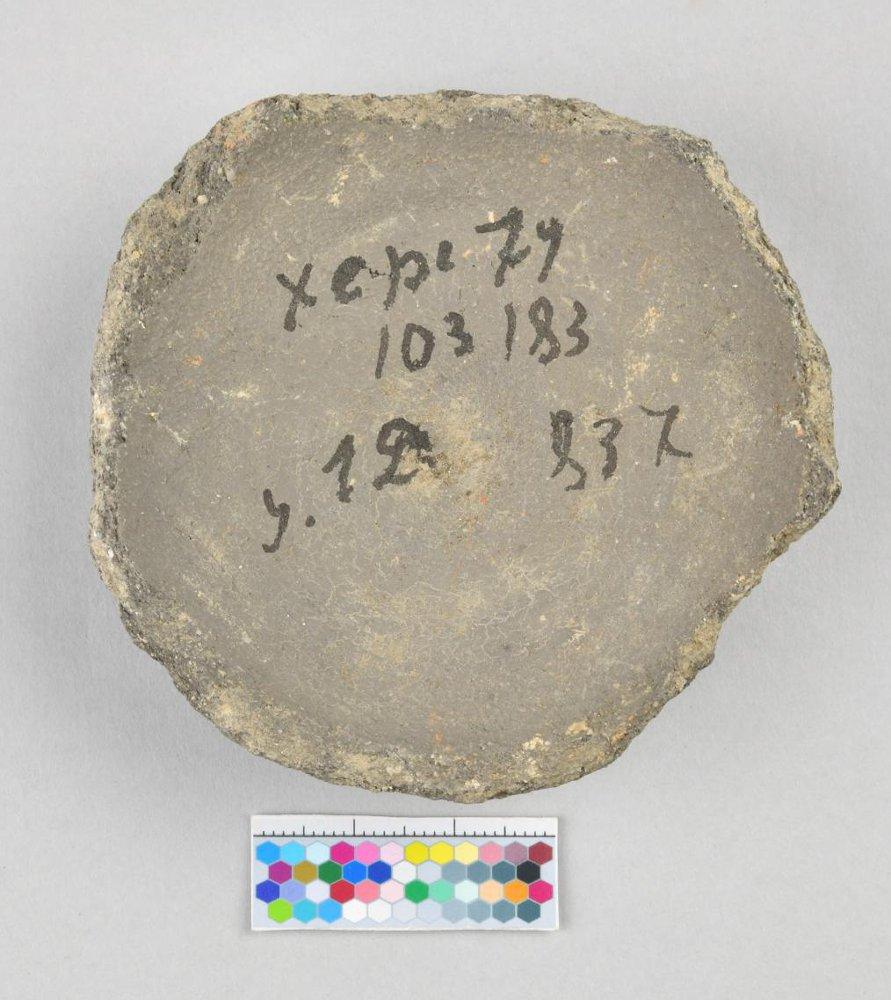 херс 74
103 183
у. 12 837